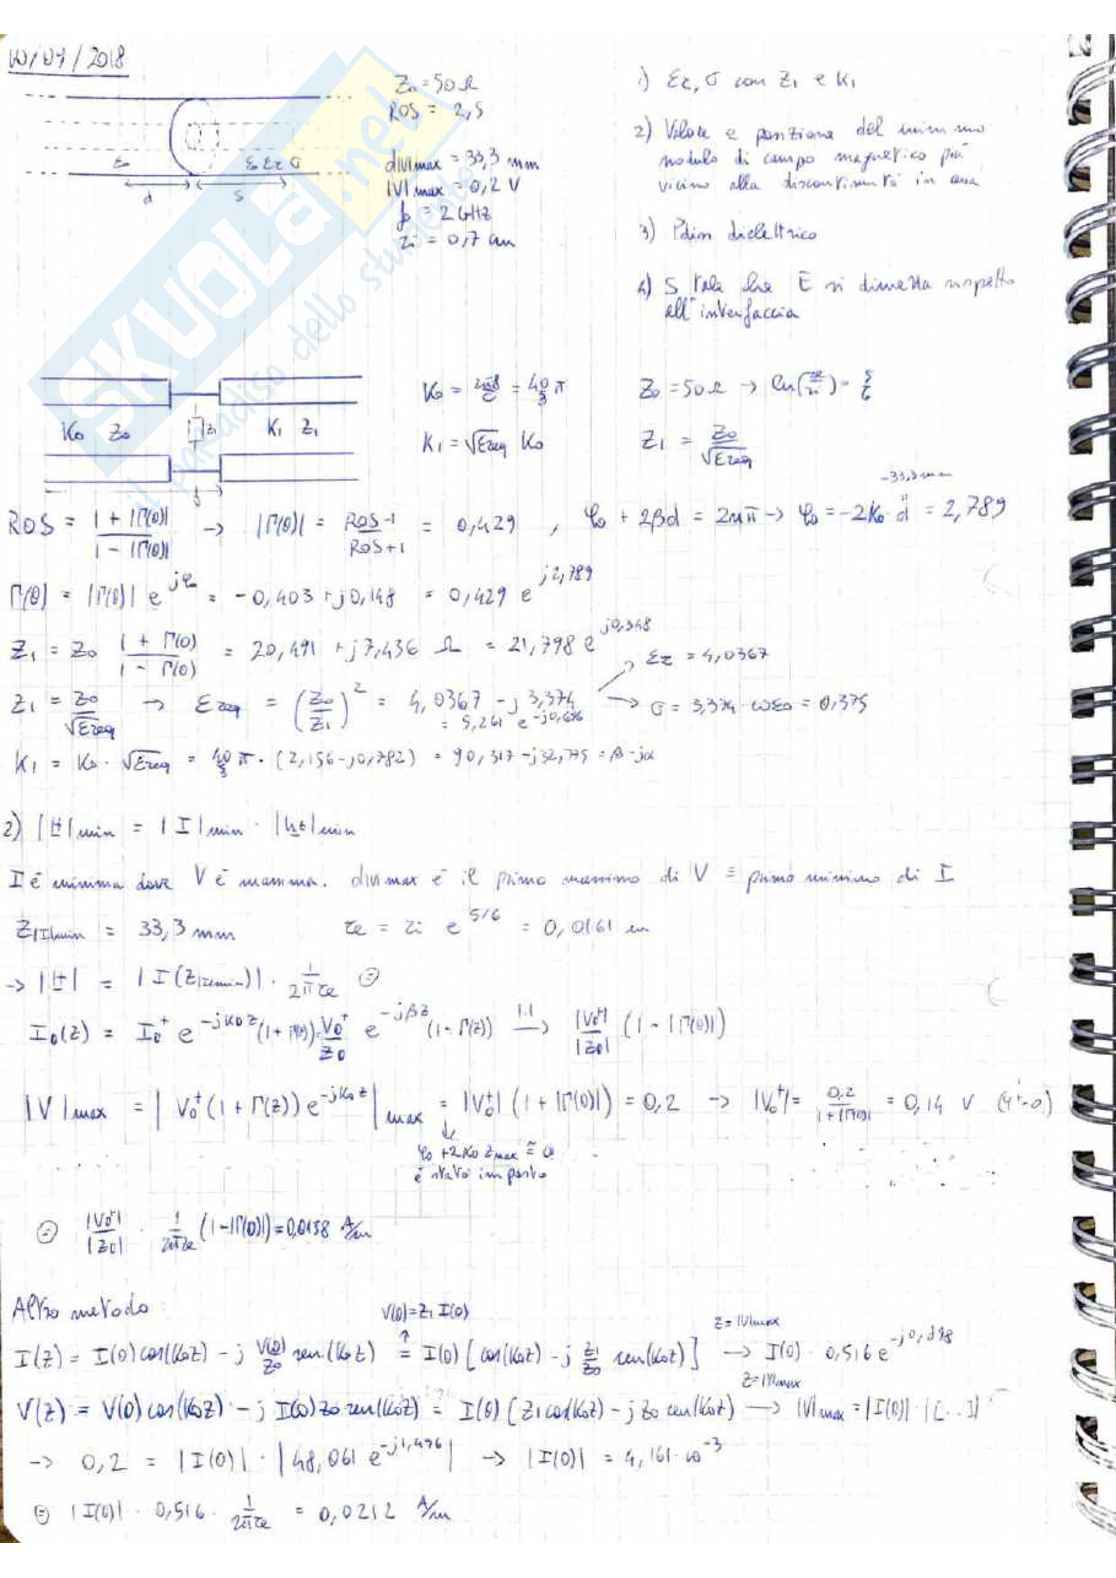 10/07/2018
Z₀ = 50 Ω
ROS = 2,5
d|V|max = 33,3 mm
|V|max = 0,2 V
f₀ = 2 GHz
ri = 0,7 cm
1) εr, σ con Z₁ e K₁
2) Valore e posizione del minimo
modulo di campo magnetico più
vicino alla discontinuità in aria
3) Pdiss dielettrico
4) S tale che E si dimezza rispetto
all'interfaccia
ε₀ ε₀ εr σ
d S
SKUOLA.net
il paradiso dello studente
K₀ Z₀ Z₁ K₁ Z₁
K₀ = 2πf/c = 40/3 π
K₁ = √εreq K₀
Z₀ = 50 Ω → ln(re/ri) = 5/6
Z₁ = Z₀/√εreq
ROS = (1 + |Γ(0)|)/(1 - |Γ(0)|) → |Γ(0)| = (ROS-1)/(ROS+1) = 0,429 , φ₀ + 2βd = 2nπ → φ₀ = -2K₀·d = 2,789
-33,3 mm
Γ(0) = |Γ(0)| e^jφ₀ = -0,403 + j0,148 = 0,429 e^j2,789
Z₁ = Z₀ (1 + Γ(0))/(1 - Γ(0)) = 20,491 + j7,436 Ω = 21,798 e^j0,348
Z₁ = Z₀/√εreq → εreq = (Z₀/Z₁)² = 4,0367 - j3,374 = 5,261 e^-j0,696
εr = 4,0367
σ = 3,374 · ωε₀ = 0,375
K₁ = K₀ · √εreq = 40/3 π · (2,156 - j0,782) = 90,317 - j32,775 = β - jα
2) |H|min = |I|min · |ht|min
I è minima dove V è massima. d|V|max è il primo massimo di V ≡ primo minimo di I
Z|I|min = 33,3 mm re = ri e^5/6 = 0,0161 m
→ |H| = |I(Z|I|min)| · 1/2πre ⊜
I₀(z) = I₀⁺ e^-jK₀z (1 + Γ(0)) V₀⁺/Z₀ e^-jβz (1 - Γ(z)) →|·| |V₀⁺|/|Z₀| (1 - |Γ(0)|)
|V|max = |V₀⁺(1 + Γ(z)) e^-jK₀z|max = |V₀⁺| (1 + |Γ(0)|) = 0,2 → |V₀⁺| = 0,2/(1+|Γ(0)|) = 0,14 V
φ₀ + 2K₀ zmax ≅ 0
è stato imposto
⊜ |V₀⁺|/|Z₀| · 1/2πre (1 - |Γ(0)|) = 0,0158 A/m
Altro metodo:
V(0) = Z₁ I(0)
I(z) = I(0) cos(K₀z) - j V(0)/Z₀ sen(K₀z) = I(0) [cos(K₀z) - j Z₁/Z₀ sen(K₀z)] → I(0) · 0,516 e^-j0,298
z = |V|max
V(z) = V(0) cos(K₀z) - j I(0) Z₀ sen(K₀z) = I(0) [Z₁ cos(K₀z) - j Z₀ sen(K₀z)] → |V|max = |I(0)| · |[...]|
z = |V|max
→ 0,2 = |I(0)| · |48,061 e^-j1,496| → |I(0)| = 4,161·10⁻³
⊜ |I(0)| · 0,516 · 1/2πre = 0,0212 A/m